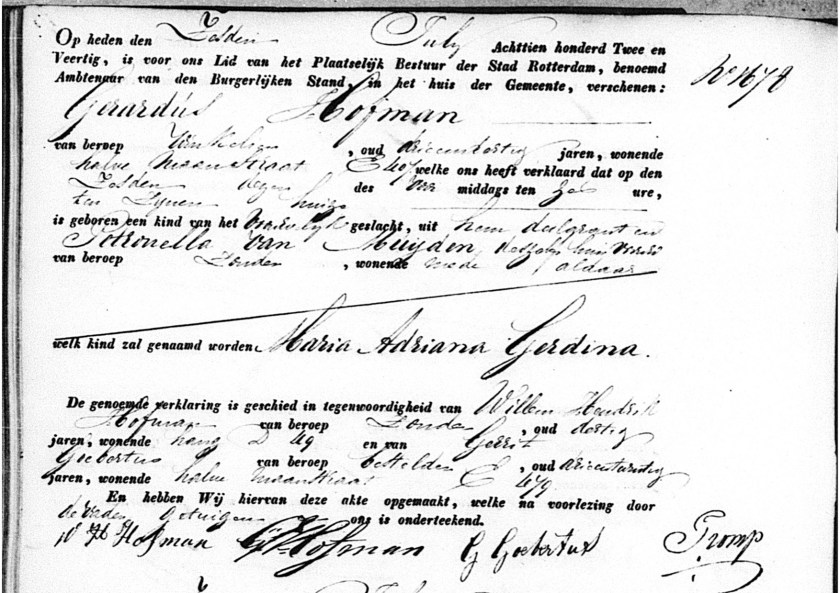 Op heden den Zesden July Achttien honderd Twee en
Veertig, is voor ons Lid van het Plaatselijk Bestuur der Stad Rotterdam, benoemd
Ambtenaar van den Burgerlijken Stand, in het huis der Gemeente, verschenen:
No 1678
Gerardus Hofman
van beroep Winkelier, oud drieendertig jaren, wonende
halve maanstraat E 497 welke ons heeft verklaard dat op den
Zesden dezer des middags ten Zes ure,
ten Zijnen huize
is geboren een kind van het Vrouwelijk geslacht, uit hem declarant en
Petronella van Muyden, deszelfs huisvrouw
van beroep Zonder, wonende mede aldaar
welk kind zal genaamd worden Maria Adriana Gerdina.
De genoemde verklaring is geschied in tegenwoordigheid van Willem Hendrik
Hofman van beroep Zonder, oud dertig
jaren, wonende hang D 49 en van Gerrit
Goebertus van beroep besteller, oud
jaren, wonende halve maanstraat E 479
En hebben Wij hiervan deze akte opgemaakt, welke na voorlezing door
de vader getuigen ons is onderteekend.
W H Hofman G Hofman G Goebertus Tromp
July